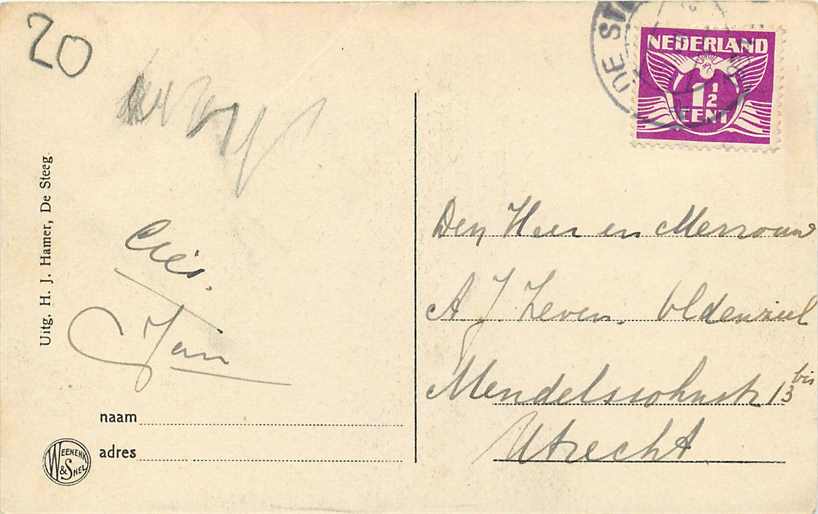 20
DE ST
NEDERLAND
1 1/2
CENT
Uitg. H. J. Hamer, De Steeg
Cies.
Jan
Den Heer en Mevrouw
A. J. Zeven. Oldenziel
Mendelssohnstr 13 bis
Utrecht
naam
adres
WEENENK & SNEL